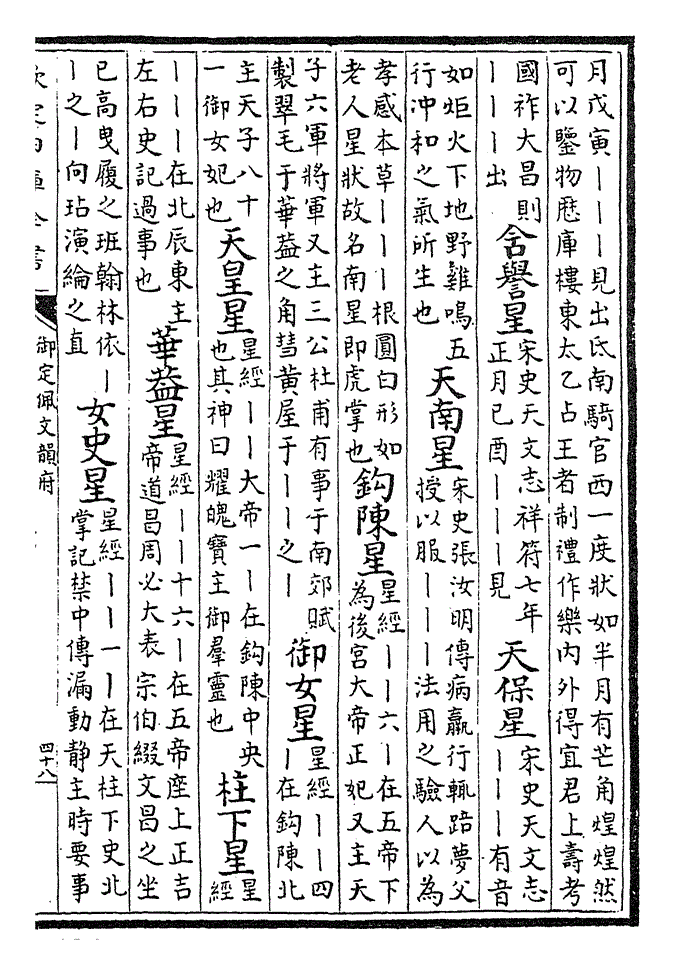 月戊寅｜｜｜見出氐南騎官西一度狀如半月有芒角煌煌然
可以鑒物歴庫樓東太乙占王者制禮作樂内外得宜君上壽考
國祚大昌則
｜｜｜出
舍譽星
宋史天文志祥符七年
正月已酉｜｜｜見
天保星
宋史天文志
｜｜｜有音
如炬火下地野雞鳴五
行冲和之氣所生也
天南星
宋史張汝明傳病羸行輒踣夢父
授以服｜｜｜法用之驗人以為
孝感本草｜｜｜根圓白形如
老人星狀故名南星即虎掌也
鈎陳星
星經｜｜六｜在五帝下
為後宮大帝正妃又主天
子六軍將軍又主三公杜甫有事于南郊賦
製翠毛于華葢之角彗黄屋于｜｜之｜
御女星
星經｜｜四
｜在鈎陳北
主天子八十
一御女妃也
天皇星
星經｜｜大帝一｜在鈎陳中央
也其神曰耀魄寶主御羣靈也
柱下星
星
經
｜｜｜在北辰東主
左右史記過事也
華葢星
星經｜｜十六｜在五帝座上正吉
帝道昌周必大表宗伯綴文昌之坐
已高曳履之班翰林依｜
｜之｜向玷演綸之直
女史星
星經｜｜一｜在天柱下史北
掌記禁中傳漏動静主時要事
欽定四庫全書
御定佩文韻府
四十八